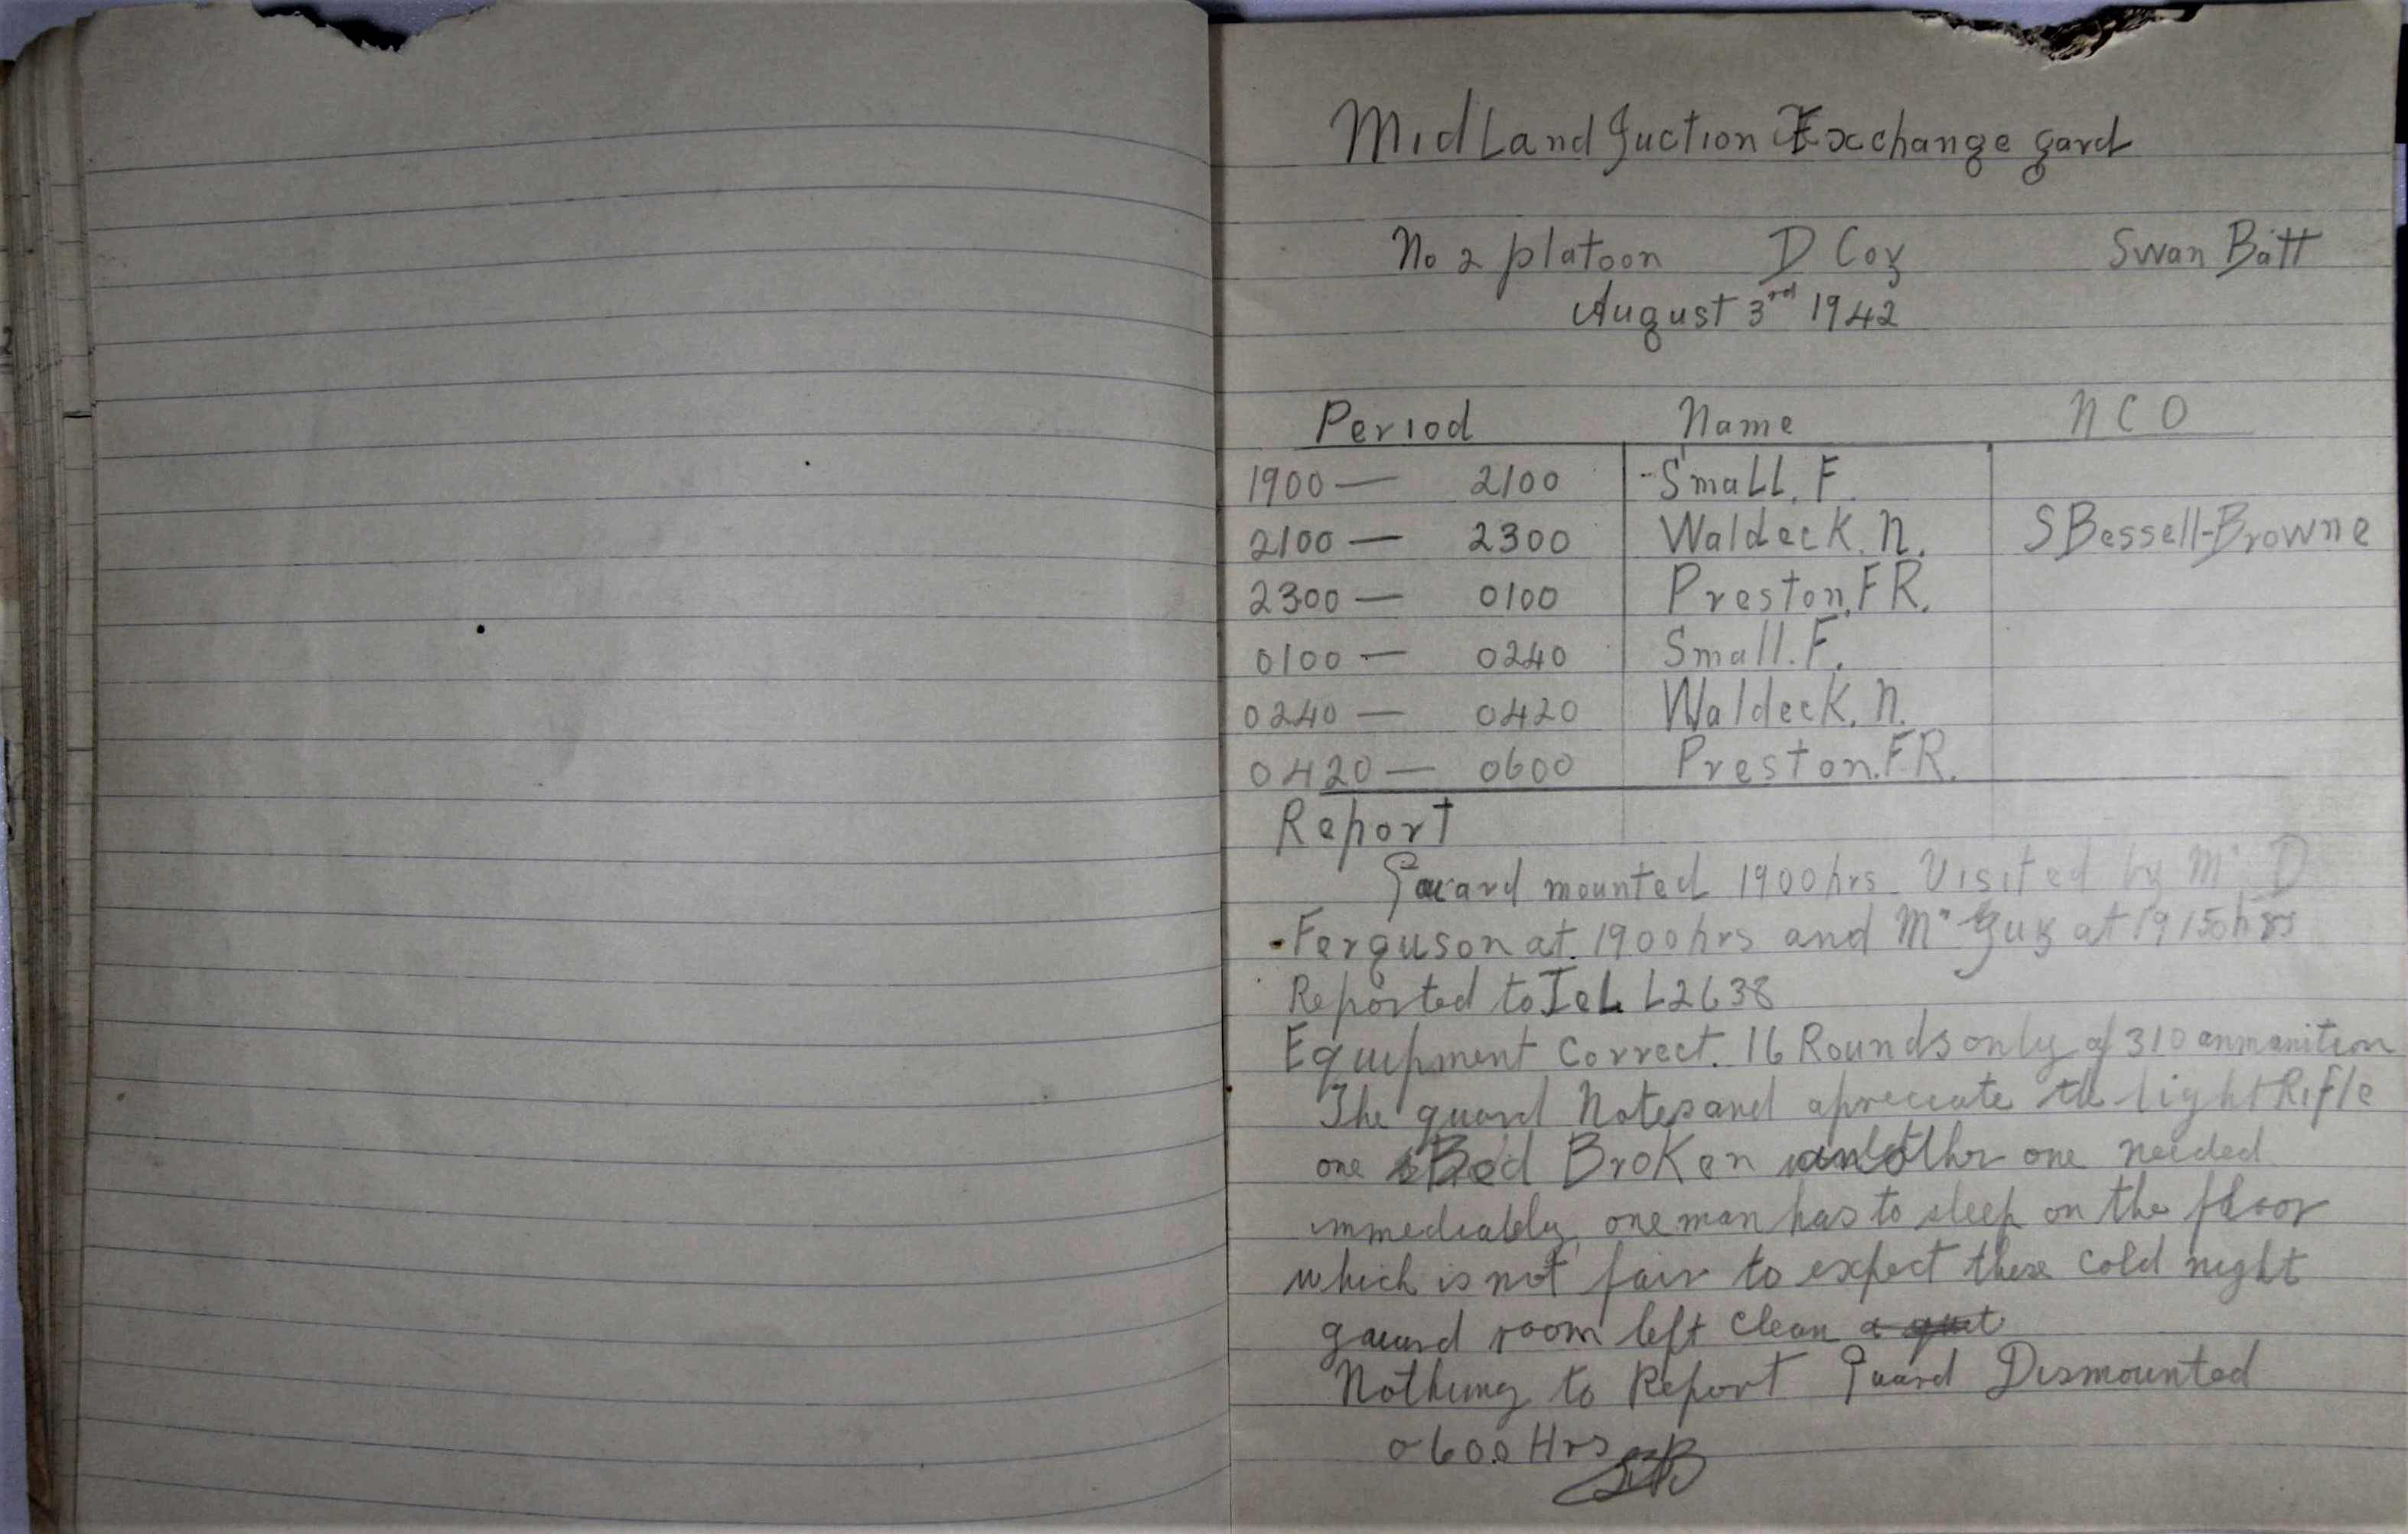 MidLand Juction Exchange gard
No 2 platoon D Coy Swan Batt
August 3rd 1942
Period Name NCO
1900 — 2100 Small. F.
2100 — 2300 Waldeck. N. S Bessell-Browne
2300 — 0100 Preston. F R.
0100 — 0240 Small. F.
0240 — 0420 Waldeck. N.
0420 — 0600 Preston. F R.
Report
Guard mounted 1900 hrs Visited by Mr D
Ferguson at 1900 hrs and Mr Guy at
Reported to Tel L2638
Equipment Correct. 16 Rounds only of 310 anmanition
The guard Notes and apreciate the light Rifle
one Bed Broken another one needed
immediably, one man has to sleep on the floor
which is not fair to expect these cold night
gaurd room left clean
Nothing to Report Guard Dismounted
0600 Hrs SBB